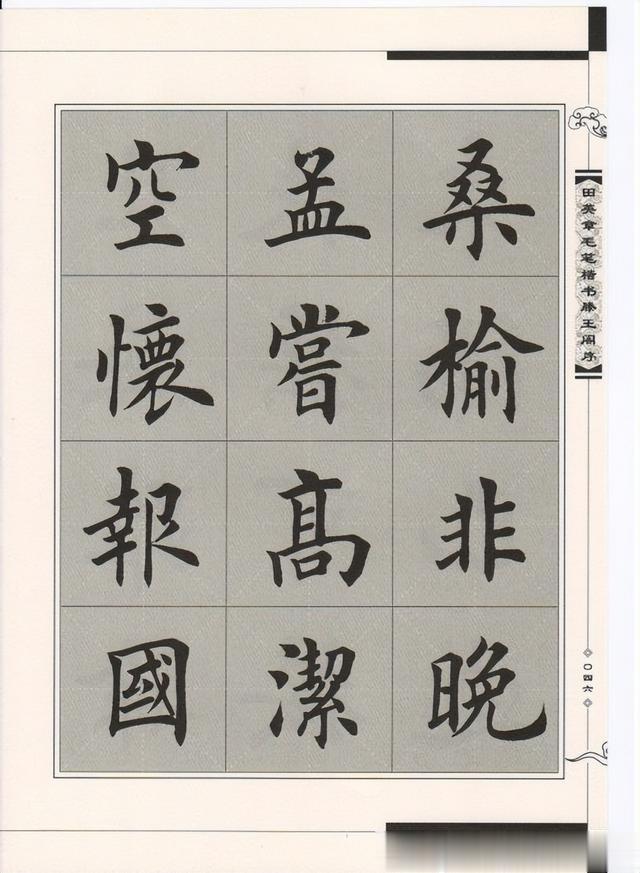 桑榆非晚
孟嘗高潔
空懷報國
田英章毛笔楷书滕王阁序
〇四六